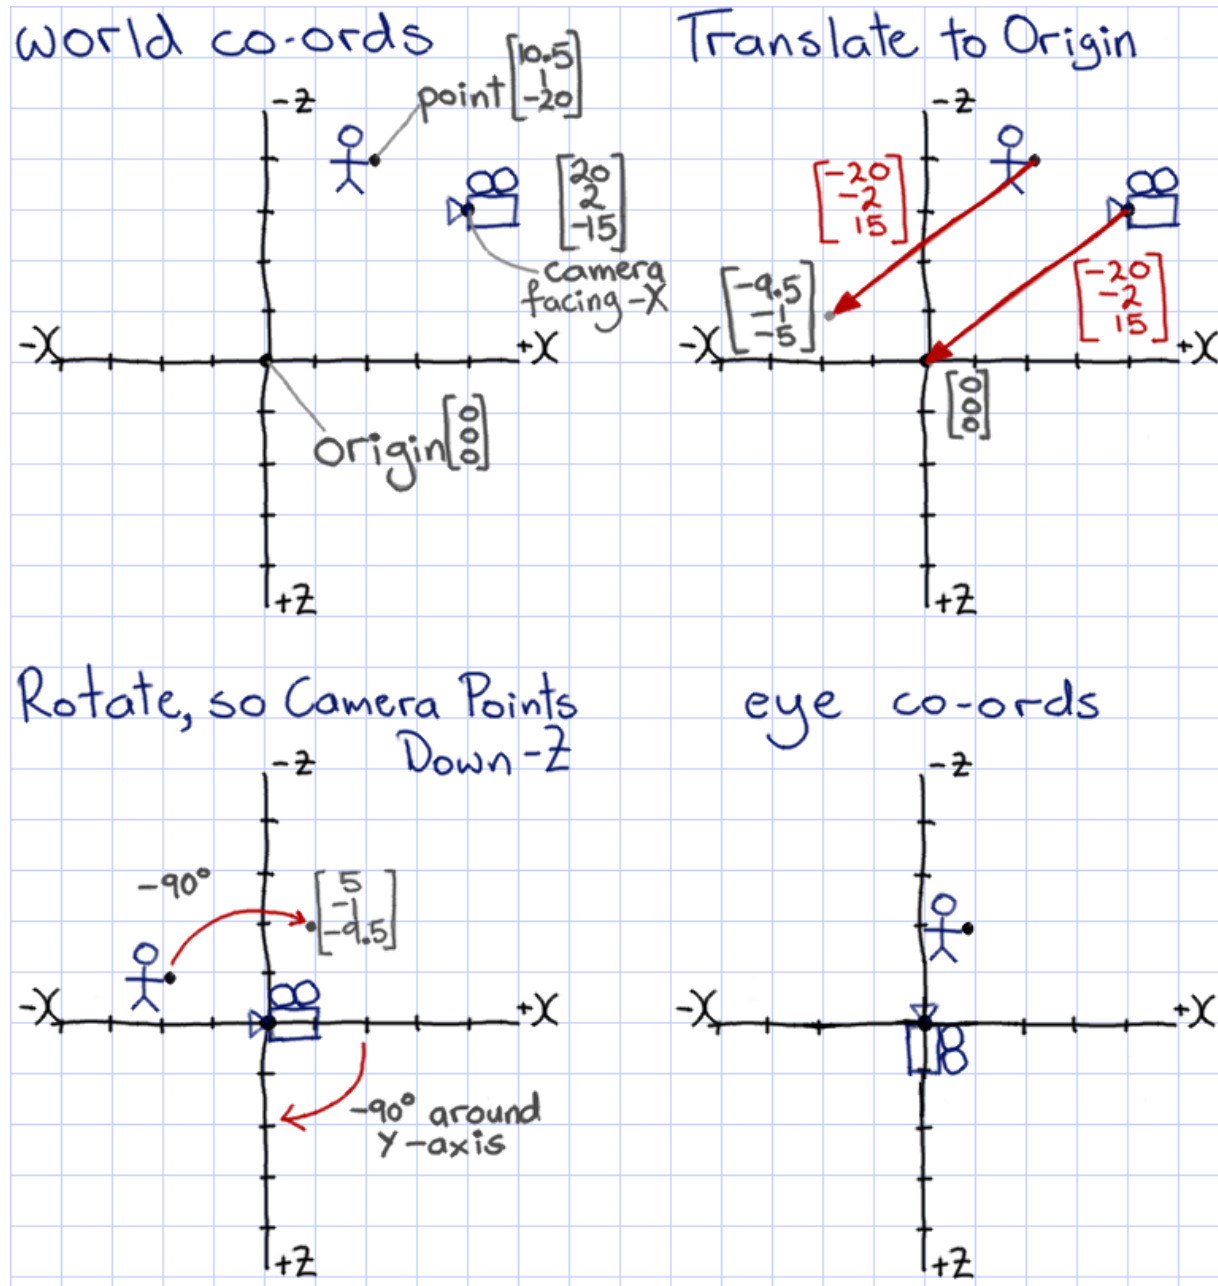 world co-ords
-Z
point [10.5
1
-20]
[20
2
-15]
camera
facing -X
-X
+X
origin [0
0
0]
+Z
Translate to Origin
-Z
[-20
-2
15]
[-9.5
-1
-5]
[-20
-2
15]
-X
+X
[0
0
0]
+Z
Rotate, so Camera Points
Down -Z
-Z
-90°
[5
-1
-9.5]
-X
+X
-90° around
Y-axis
+Z
eye co-ords
-Z
-X
+X
+Z